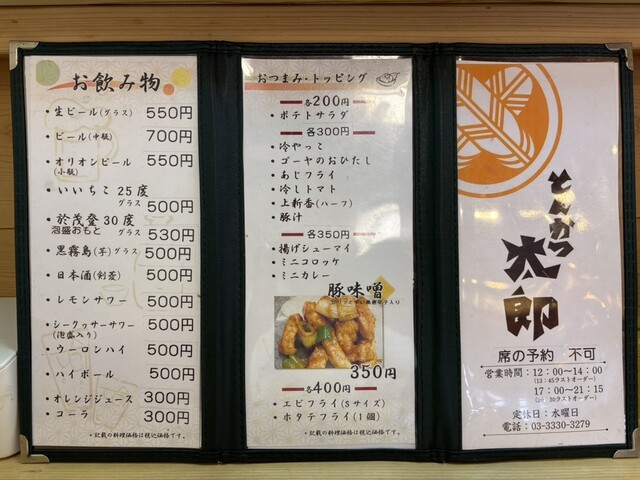 お飲み物
・生ビール(グラス) 550円
・ビール(中瓶) 700円
・オリオンビール 550円
(小瓶)
・いいちこ 25度
グラス 500円
・於茂登 30度
泡盛おもと グラス 530円
・黒霧島(芋)グラス 500円
・日本酒(剣菱) 500円
・レモンサワー 500円
・シークヮーサーサワー 500円
(泡盛入り)
・ウーロンハイ 500円
・ハイボール 500円
・オレンジジュース 300円
・コーラ 300円
・記載の料理価格は税込価格です。
おつまみ・トッピング
各200円
・ポテトサラダ
各300円
・冷やっこ
・ゴーヤのおひたし
・あじフライ
・冷しトマト
・上新香(ハーフ)
・豚汁
各350円
・揚げシューマイ
・ミニコロッケ
・ミニカレー
豚味噌
350円
各400円
・エビフライ(Sサイズ)
・ホタテフライ(1個)
・記載の料理価格は税込価格です。
とんかつ
太郎
席の予約 不可
営業時間:12:00〜14:00
(13:45ラストオーダー)
17:00〜21:15
ラストオーダー)
定休日:水曜日
電話:03-3330-3279